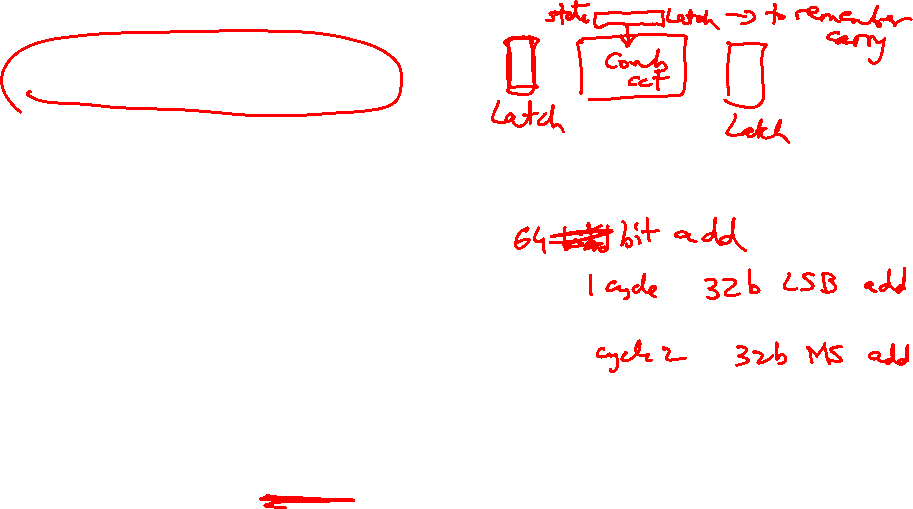 state Latch → to remember
carry
Comb
cct
Latch
Latch
64 bit add
1 cycle 32b LSB add
cycle 2 32b MS add